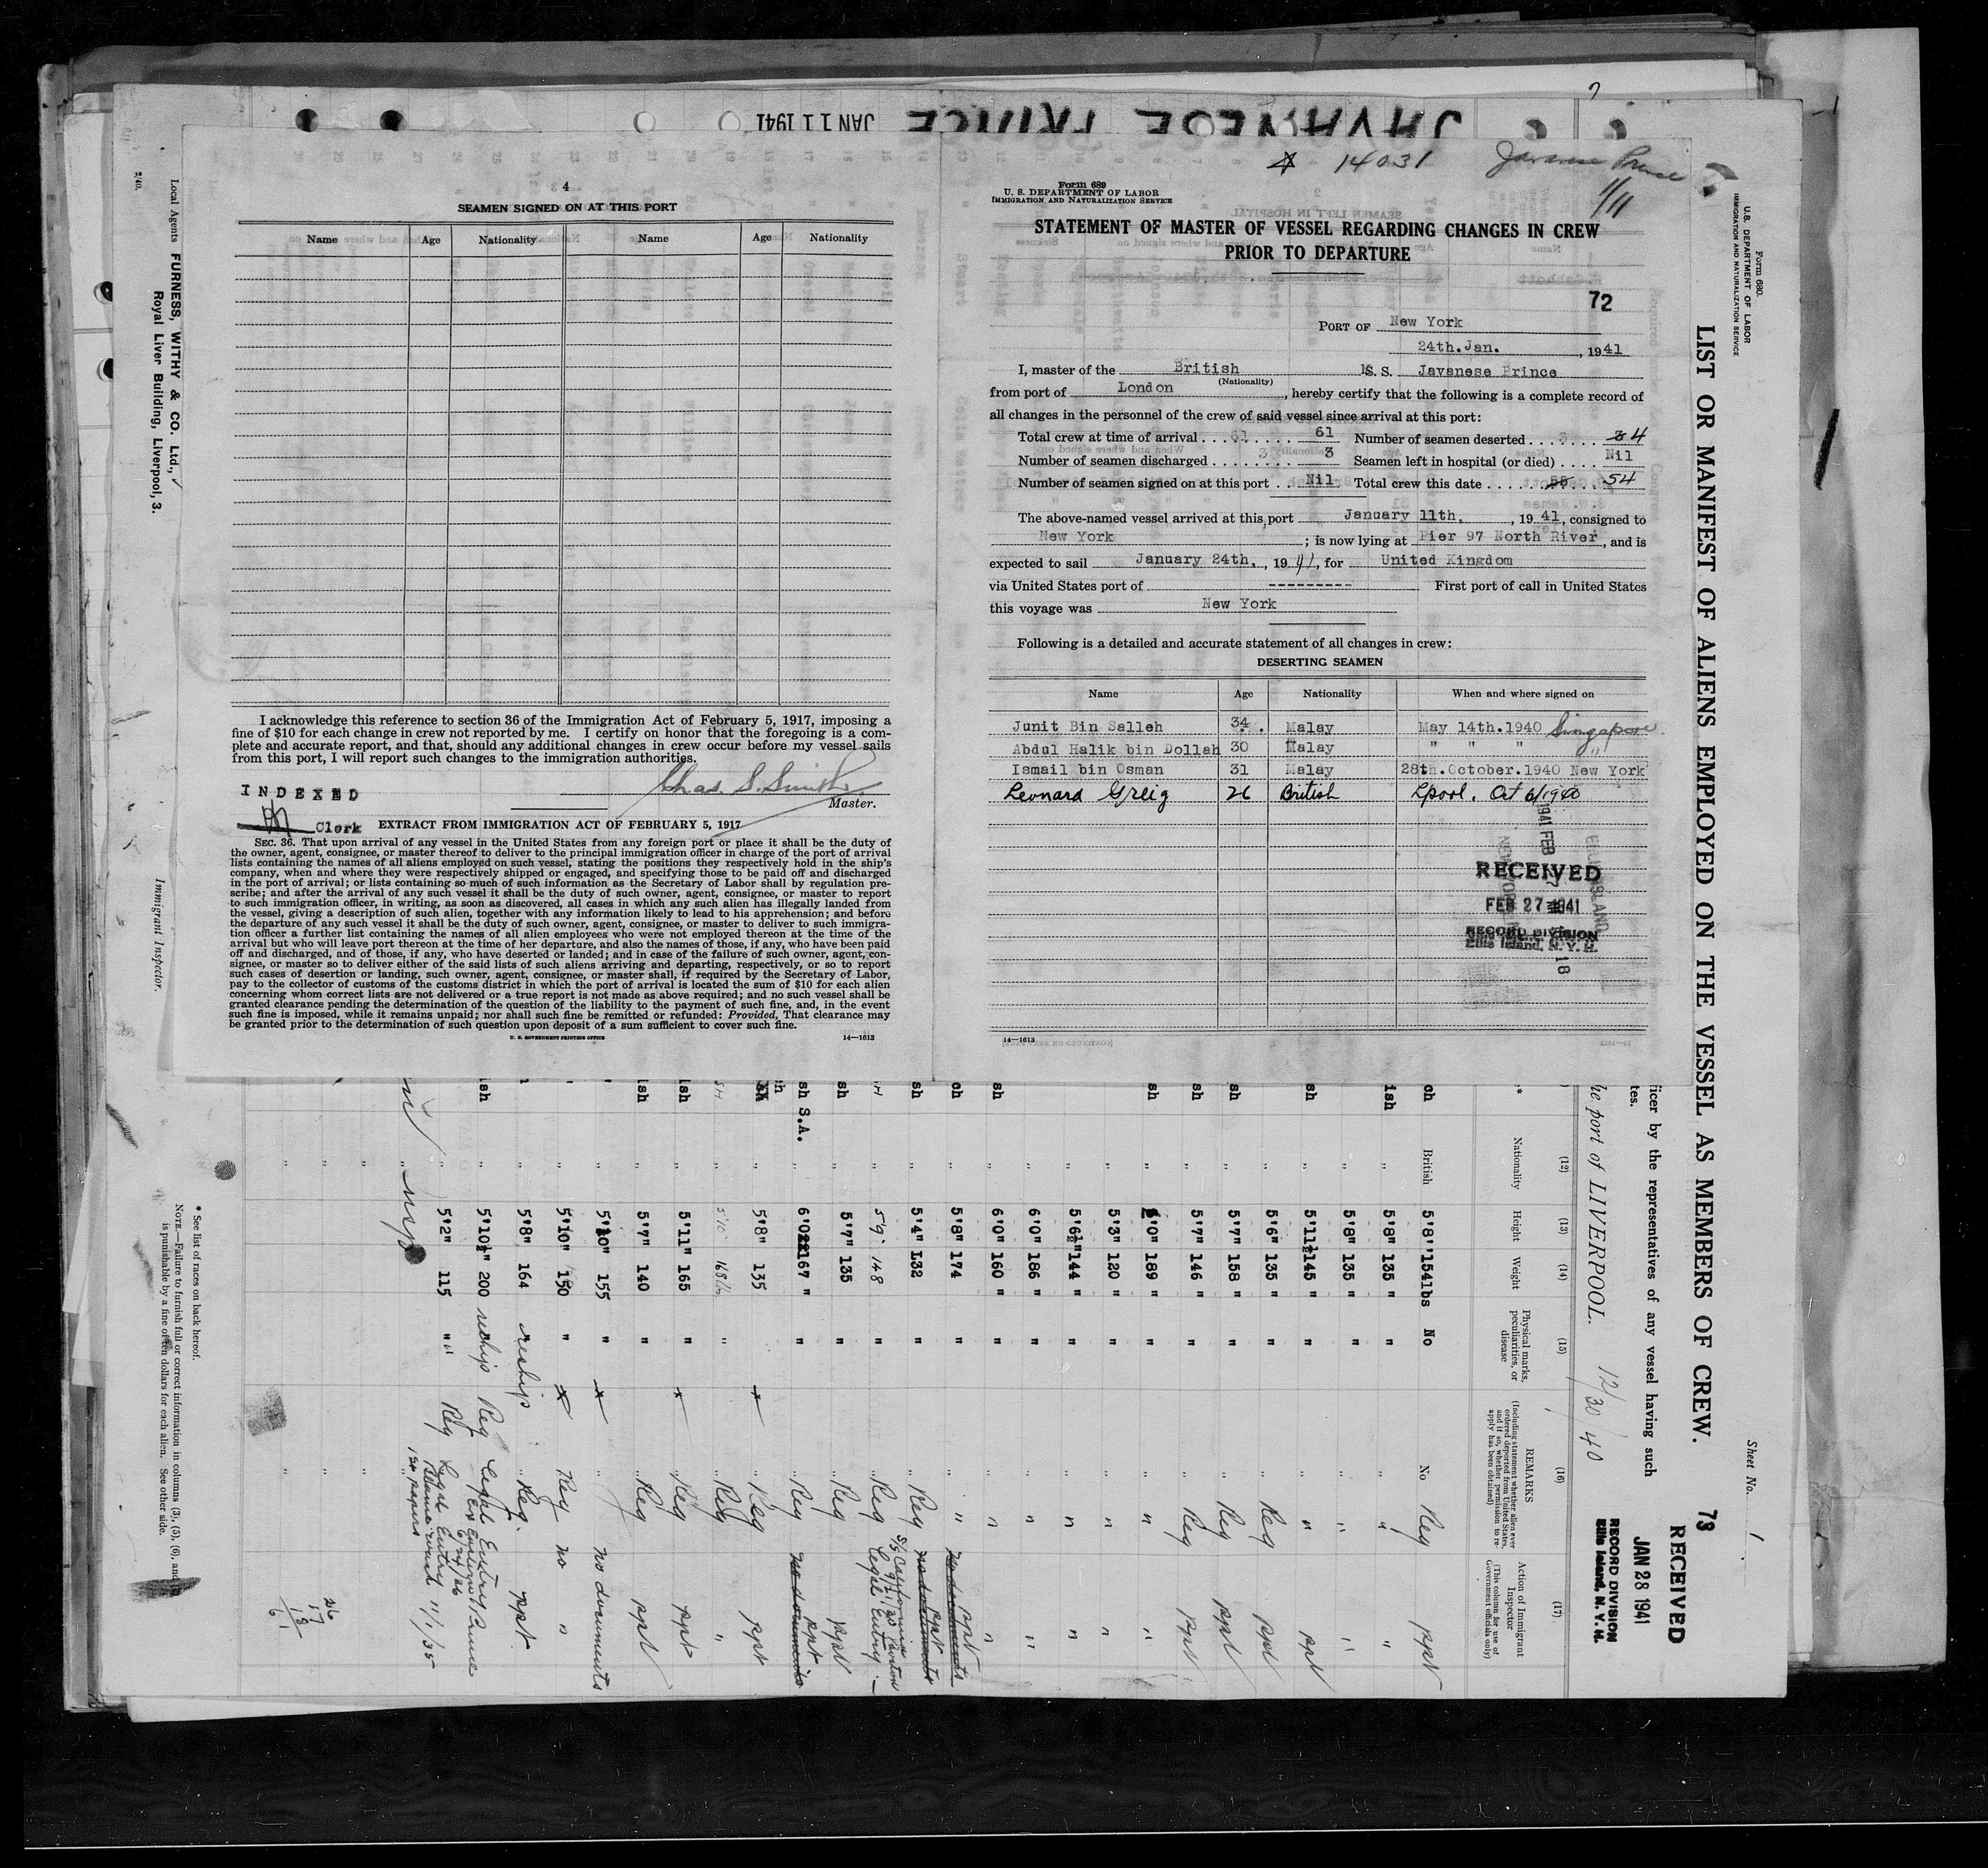 JAVANESE PRINCE
JAN 11 1941
14031
Javanese Prince
1/11
4
SEAMEN SIGNED ON AT THIS PORT
Name Age Nationality Name Age Nationality
I acknowledge this reference to section 36 of the Immigration Act of February 5, 1917, imposing a
fine of $10 for each change in crew not reported by me. I certify on honor that the foregoing is a com-
plete and accurate report, and that, should any additional changes in crew occur before my vessel sails
from this port, I will report such changes to the immigration authorities.
Chas. S. Smith
Master.
INDEXED
Clerk
EXTRACT FROM IMMIGRATION ACT OF FEBRUARY 5, 1917
SEC. 36. That upon arrival of any vessel in the United States from any foreign port or place it shall be the duty of
the owner, agent, consignee, or master thereof to deliver to the principal immigration officer in charge of the port of arrival
lists containing the names of all aliens employed on such vessel, stating the positions they respectively hold in the ship's
company, when and where they were respectively shipped or engaged, and specifying those to be paid off and discharged
in the port of arrival; or lists containing so much of such information as the Secretary of Labor shall by regulation pre-
scribe; and after the arrival of any such vessel it shall be the duty of such owner, agent, consignee, or master to report
to such immigration officer, in writing, as soon as discovered, all cases in which any such alien has illegally landed from
the vessel, giving a description of such alien, together with any information likely to lead to his apprehension; and before
the departure of any such vessel it shall be the duty of such owner, agent, consignee, or master to deliver to such immigra-
tion officer a further list containing the names of all alien employees who were not employed thereon at the time of the
arrival but who will leave port thereon at the time of her departure, and also the names of those, if any, who have been paid
off and discharged, and of those, if any, who have deserted or landed; and in case of the failure of such owner, agent, con-
signee, or master so to deliver either of the said lists of such aliens arriving and departing, respectively, or so to report
such cases of desertion or landing, such owner, agent, consignee, or master shall, if required by the Secretary of Labor,
pay to the collector of customs of the customs district in which the port of arrival is located the sum of $10 for each alien
concerning whom correct lists are not delivered or a true report is not made as above required; and no such vessel shall be
granted clearance pending the determination of the question of the liability to the payment of such fine, and, in the event
such fine is imposed, while it remains unpaid; nor shall such fine be remitted or refunded: Provided, That clearance may
be granted prior to the determination of such question upon deposit of a sum sufficient to cover such fine.
U. S. GOVERNMENT PRINTING OFFICE 14—1613
Form 689
U. S. DEPARTMENT OF LABOR
IMMIGRATION AND NATURALIZATION SERVICE
STATEMENT OF MASTER OF VESSEL REGARDING CHANGES IN CREW
PRIOR TO DEPARTURE
72
PORT OF New York
24th.Jan., 1941
I, master of the British S. S. Javanese Prince
(Nationality)
from port of London, hereby certify that the following is a complete record of
all changes in the personnel of the crew of said vessel since arrival at this port:
Total crew at time of arrival 61 Number of seamen deserted 3 4
Number of seamen discharged 3 Seamen left in hospital (or died) Nil
Number of seamen signed on at this port Nil Total crew this date 55 54
The above-named vessel arrived at this port January 11th, 1941, consigned to
New York; is now lying at Pier 97 North River, and is
expected to sail January 24th., 1941, for United Kingdom
via United States port of --------- First port of call in United States
this voyage was New York
Following is a detailed and accurate statement of all changes in crew:
DESERTING SEAMEN
Name Age Nationality When and where signed on
Junit Bin Salleh 34 Malay May 14th.1940 Singapore
Abdul Halik bin Dollah 30 Malay " " " "
Ismail bin Osman 31 Malay 28th.October.1940 New York
Leonard Greig 26 British Lpool. Oct 6/1940
RECEIVED
FEB 27 1941
RECORD DIVISION
Ellis Island, N. Y. H.
14—1613
Form 680.
U. S. DEPARTMENT OF LABOR
IMMIGRATION AND NATURALIZATION SERVICE
Sheet No. 1
LIST OR MANIFEST OF ALIENS EMPLOYED ON THE VESSEL AS MEMBERS OF CREW.
73
RECEIVED
JAN 28 1941
RECORD DIVISION
Ellis Island, N. Y. H.
ficer by the representatives of any vessel having such
tes.
he port of LIVERPOOL. 12/30/40
(12) (13) (14) (15) (16) (17)
Nationality
Height
Weight
Physical marks, peculiarities, or disease
REMARKS
(Including statement whether alien ever ordered deported from United States, and if so, whether permission to reapply has been obtained)
Action of Immigrant Inspector
(This column for use of Government officials only)
ch British 5'8" 154lbs No No Reg ppt
ish " 5'8" 135 " " " "
" 5'8" 135 " " " "
sh " 5'11½ 145 " " " ppt
" 5'6" 135 " " Reg ppt
sh " 5'7" 158 " " Reg ppt
sh " 5'7" 146 " " Reg ppt
sh " 6'0" 189 " " " "
" 5'3" 120 " " " "
" 5'6½" 144 " " " "
" 6'0" 186 " " " "
sh " 6'0" 160 " " " "
ch " 5'8" 174 " " " no documents ppt
sh " 5'4" 132 " " Reg no documents ppt
" 5'9" 148 " " Reg Legal Entry
S/S California
sh " 5'7" 135 " " Reg ppt
sh S.A. " 6'0 167 " " Reg no documents ppt
" 5'8" 135 " Reg ppt
" 5'10 168lb " " Reg "
ish " 5'11" 165 " " Reg ppt
ish " 5'7" 140 " " Reg ppt
" 5'10" 155 " " no documents
" 5'10" 150 " Reg no "
" 5'8" 164 reship " Reg. ppt
ish " 5'10½" 200 reship Reg Legal Entry
6/24/26
" 5'2" 115 " " Reg Legal Entry 11/1/35
1st papers
26
17
18
61
* See list of races on back hereof.
NOTE.—Failure to furnish full or correct information in columns (3), (5), (6), and
is punishable by a fine of ten dollars for each alien. See other side.
2/40.
Local Agents FURNESS, WITHY & CO. Ltd.,
Royal Liver Building, Liverpool, 3.
Immigrant Inspector.